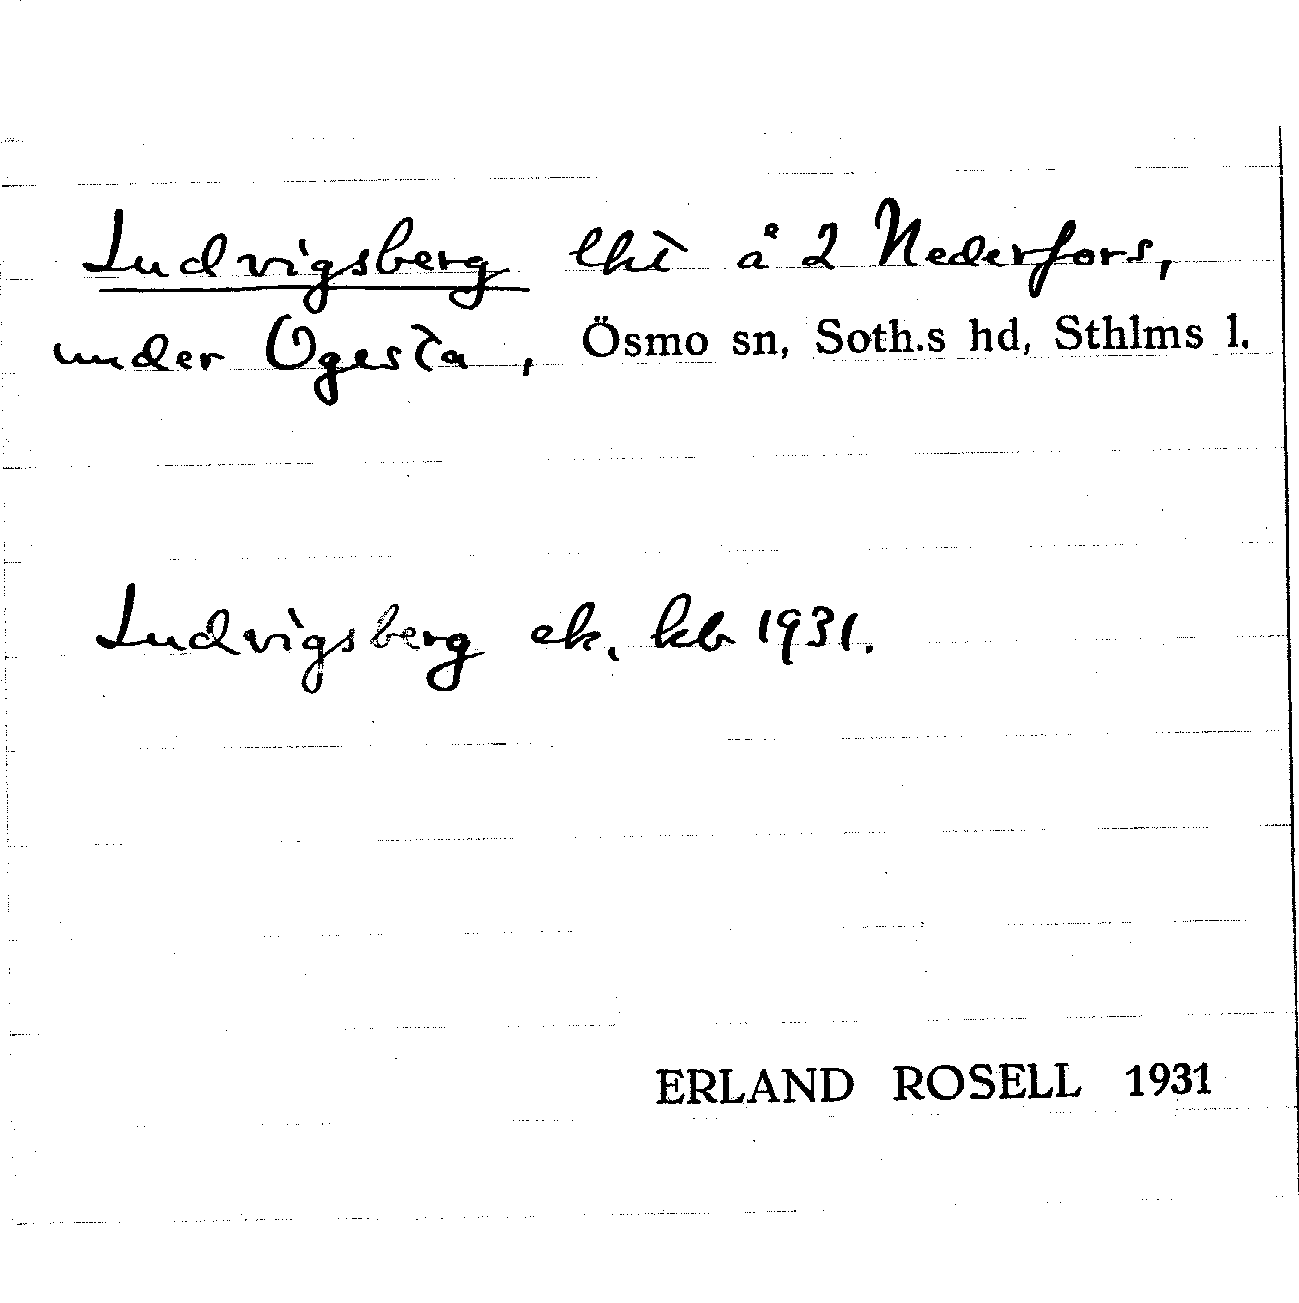 Ludvigsberg lht å 2 Nederfors,
under Ogesta, Ösmo sn, Soth.s hd, Sthlms l.
Ludvigsberg ek. kb 1931.
ERLAND ROSELL 1931